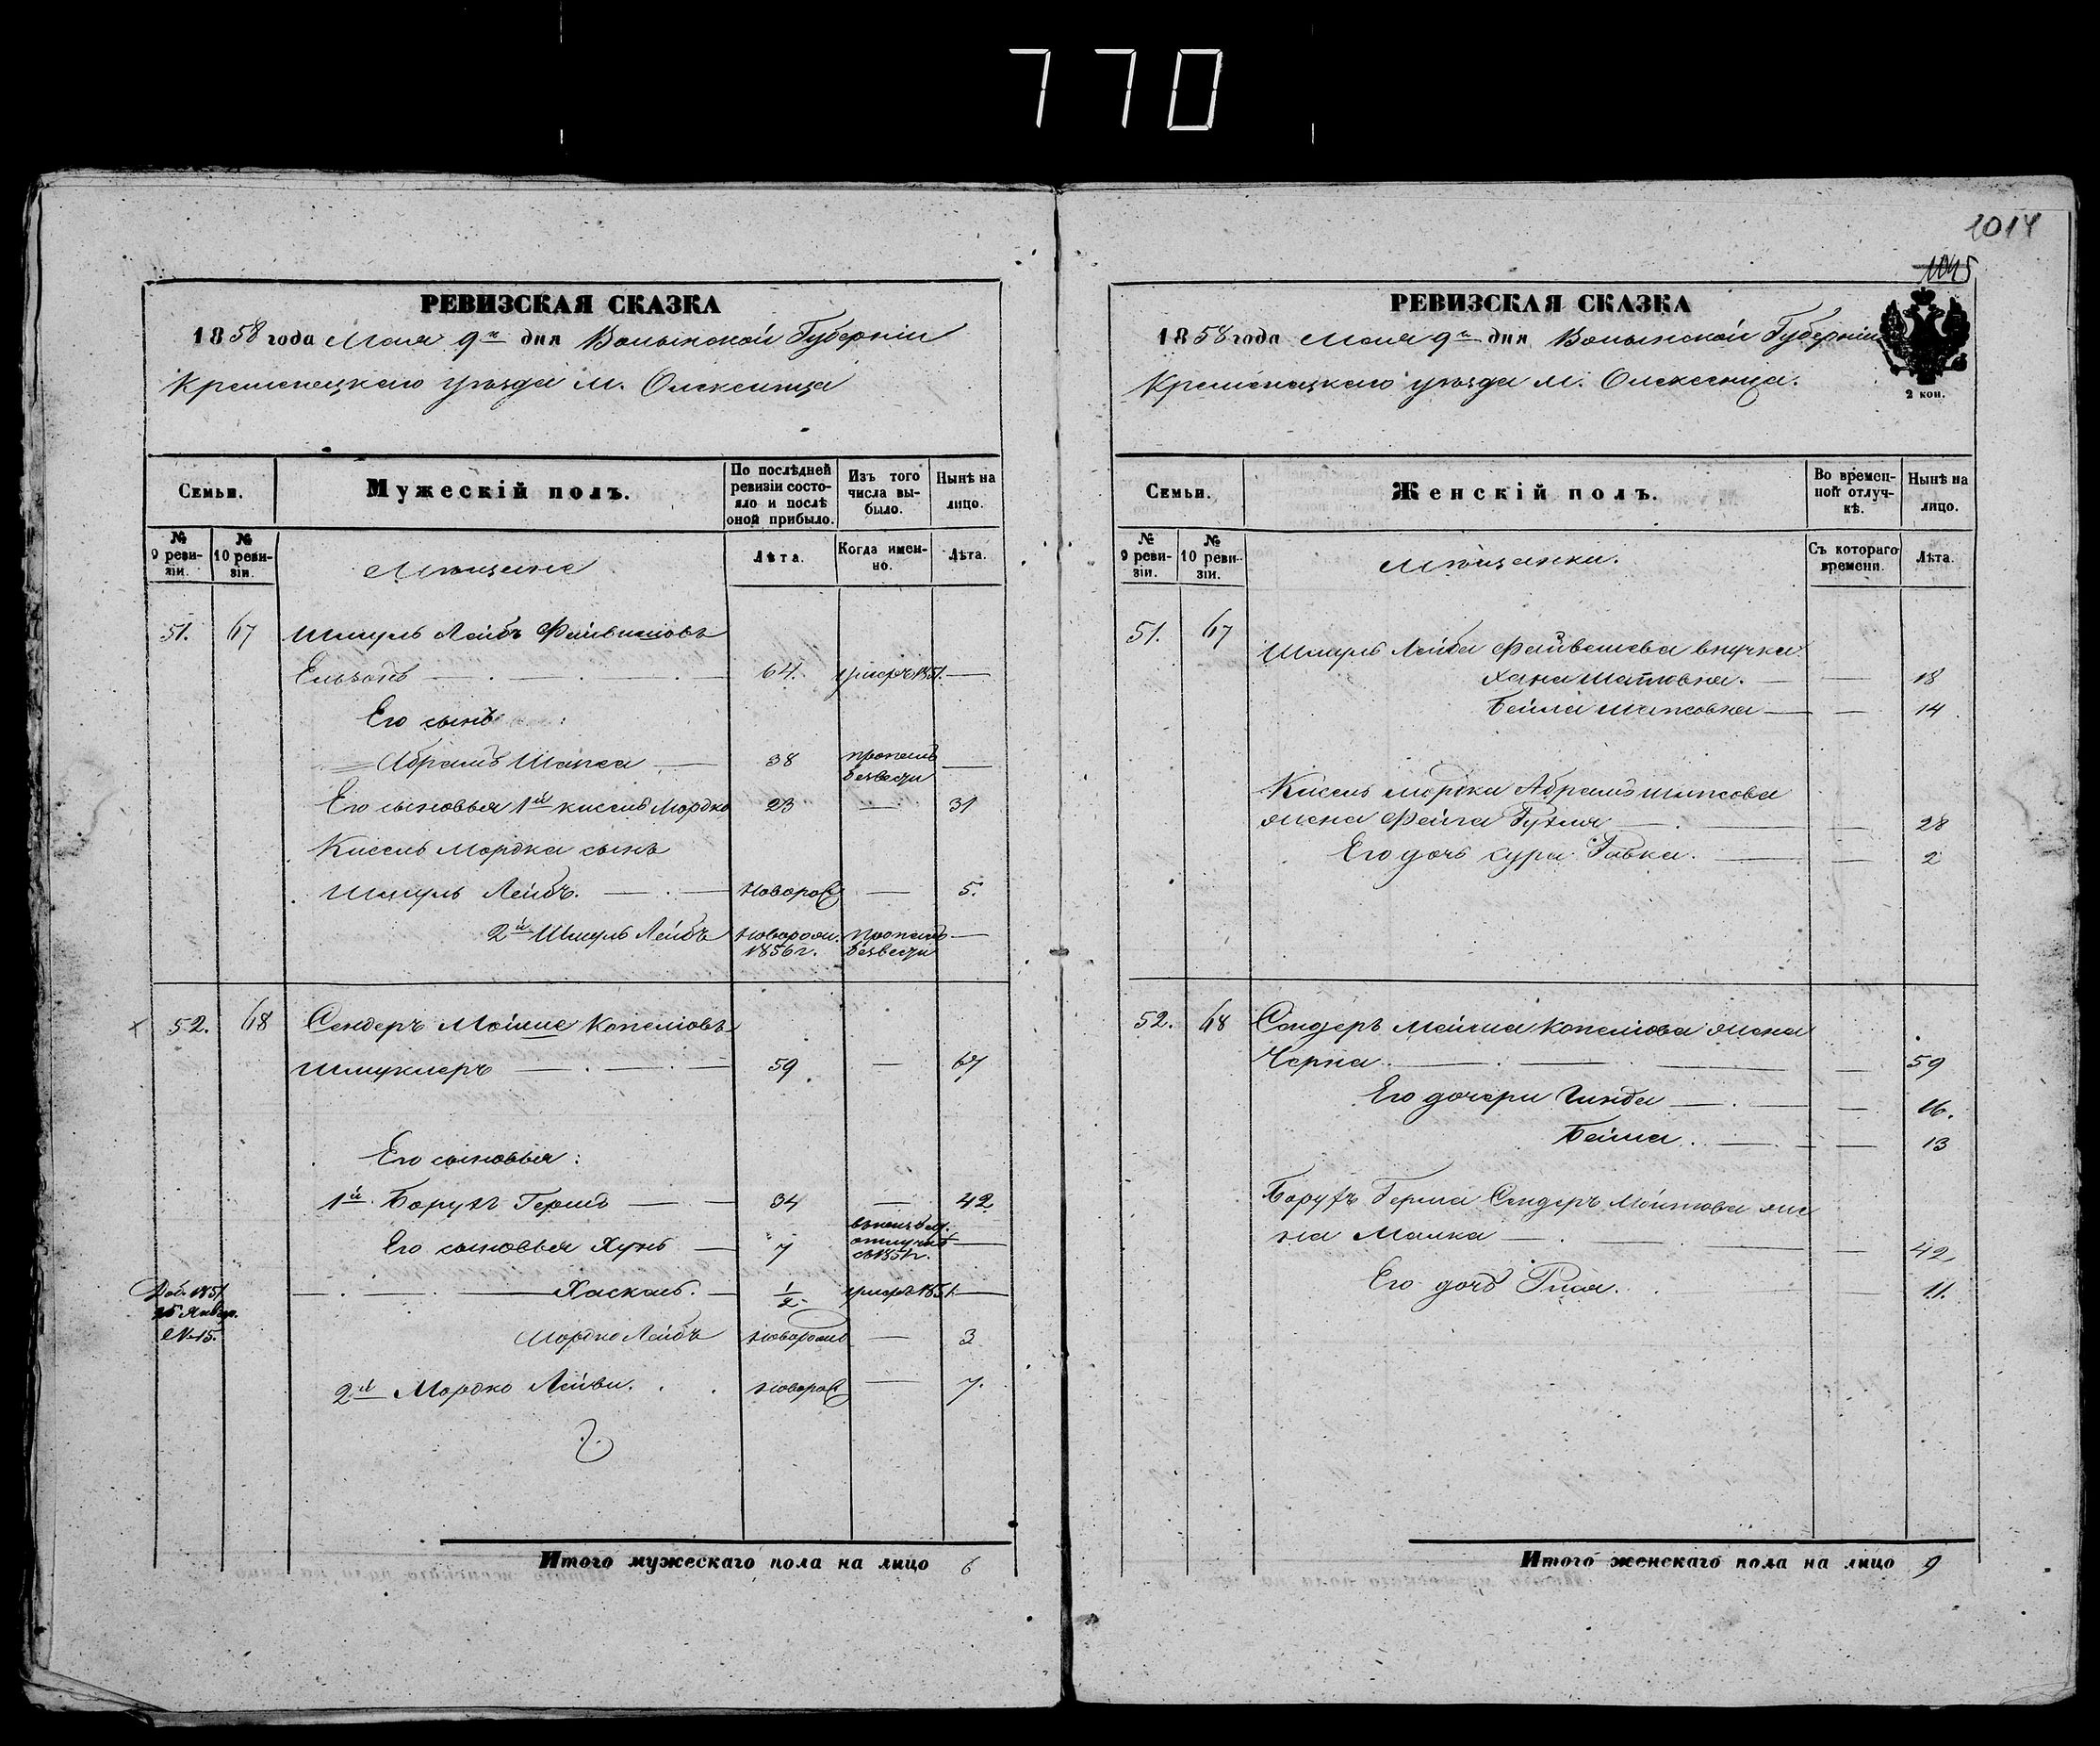 770
1014
1015
РЕВИЗСКАЯ СКАЗКА
1858 года Мая 9го дня Волынской Губерніи
Кременецкаго уѣзда м. Олексинца
Семьи.
Мужескій полъ.
По послѣдней ревизіи состояло и послѣ оной прибыло.
Изъ того числа выбыло.
Нынѣ на лицо.
№ 9 ревизіи.
№ 10 ревизіи.
Мѣщане
Лѣта.
Когда именно.
Лѣта.
51. 67 Шмуль Лейбъ Файвишовъ
Ельзонъ — 64. умеръ 1851. —
Его сынъ:
Абрамъ Шапса — 38 пропалъ безвести —
Его сыновья 1й Кисель Мордко 23 — 31
Кисель Мордка сынъ
Шмуль Лейбъ. — новорож — 5.
2й Шмуль Лейбъ новорож. 1856 г. пропалъ безвести —
52. 68 Сендеръ Мойше Копеліовъ
Шмуклеръ — 59 — 67
Его сыновья:
1й Борухъ Гершъ — 34 — 42
Его сыновья Хунъ — 7 отлучкѣ съ 1851 г. —
Доб. 1851
25 Января.
№ 15.
Хаскель. — 1/2 умеръ 1851. —
Мордко Лейбъ новорожд — 3
2й Мордко Лейви. новорож — 7.
Итого мужескаго пола на лицо 6
РЕВИЗСКАЯ СКАЗКА
1858 года Мая 9го дня Волынской Губерніи
Кременецкаго уѣзда м. Олексинца.
2 коп.
Семьи.
Женскій полъ.
Во временной отлучкѣ.
Нынѣ на лицо.
№ 9 ревизіи.
№ 10 ревизіи.
Мѣщанки.
Съ котораго времени.
Лѣта.
51. 67
Шмуль Лейба Файвешева внучка
Хана Шапсовна. — — 18
Бейла Шапсовна — — 14
Кисель Мордки Абрамъ Шапсова
жена Фейга Рухля — — 28
Его дочь Сура Ривка. — — 2
52. 68 Сендеръ Мейша Копеліова жена
Черна — — 59
Его дочери Гинда — — 16.
Бейла. — — 13
Борухъ Герша Сендеръ Мошкова же
на Малка — — 42
Его дочь Рися. — 11.
Итого женскаго пола на лицо 9